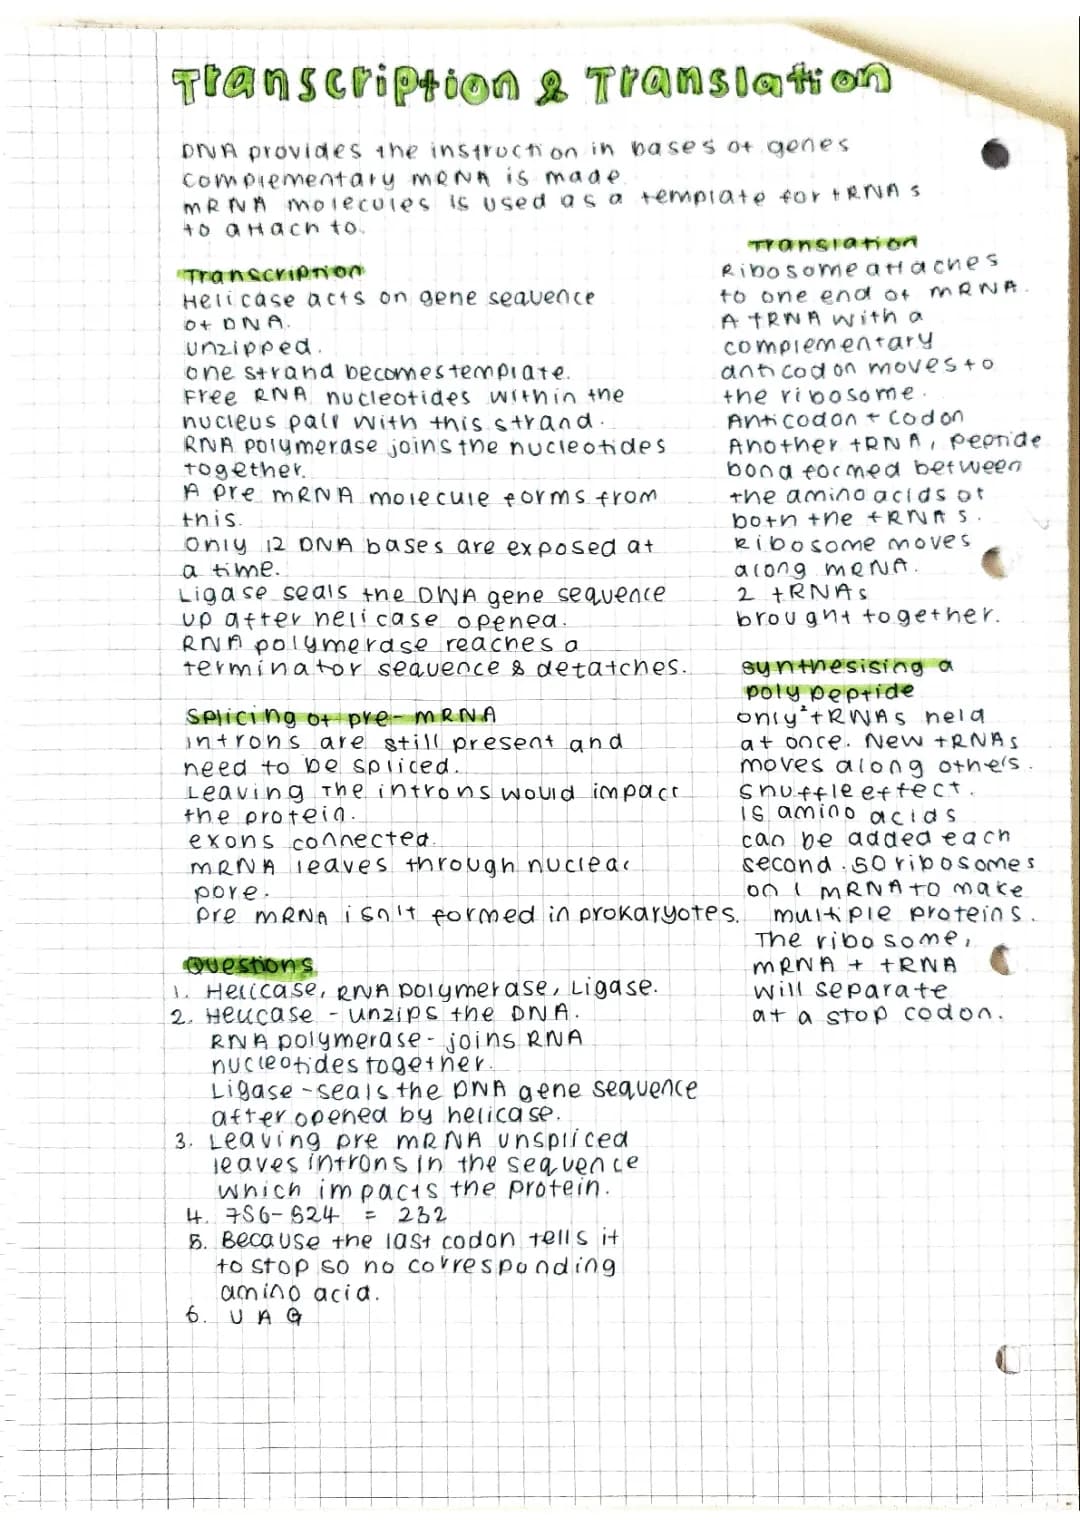 Transcription & Translation
DNA provides the instruction in bases of genes
complementary mRNA is made.
mRNA molecules is used as a template for tRNAs
to attach to.
Transcription
Helicase acts on gene sequence
of DNA.
unzipped.
one strand becomes template.
Free RNA nucleotides within the
nucleus pair with this strand.
RNA polymerase joins the nucleotides
together.
A pre mRNA molecule forms from
this.
Only 12 DNA bases are exposed at
a time.
Ligase seals the DNA gene sequence
up after helicase opened.
RNA polymerase reaches a
terminator sequence & detatches.
Splicing of pre-mRNA
introns are still present and
need to be spliced.
Leaving the introns would impact
the protein.
exons connected.
mRNA leaves through nuclear
pore.
pre mRNA isn't formed in prokaryotes.
Questions
1. Helicase, RNA polymerase, Ligase.
2. Helicase - unzips the DNA.
RNA polymerase - joins RNA
nucleotides together.
Ligase - seals the DNA gene sequence
after opened by helicase.
3. Leaving pre mRNA unspliced
leaves introns in the sequence
which impacts the protein.
4. 756-524 = 232
5. Because the last codon tells it
to stop so no corresponding
amino acid.
6. U A G
Translation
Ribosome attaches
to one end of mRNA.
A tRNA with a
complementary
anticodon moves to
the ribosome.
Anticodon + codon
Another tRNA, peptide
bond formed between
the amino acids of
both the tRNAs.
Ribosome moves
along mRNA.
2 tRNAs
brought together.
synthesising a
polypeptide
only 2 tRNAs held
at once. New tRNAs
moves along others.
shuffle effect.
15 amino acids
can be added each
second. 50 ribosomes
on 1 mRNA to make
multiple proteins.
The ribosome,
mRNA + tRNA
will separate
at a stop codon.